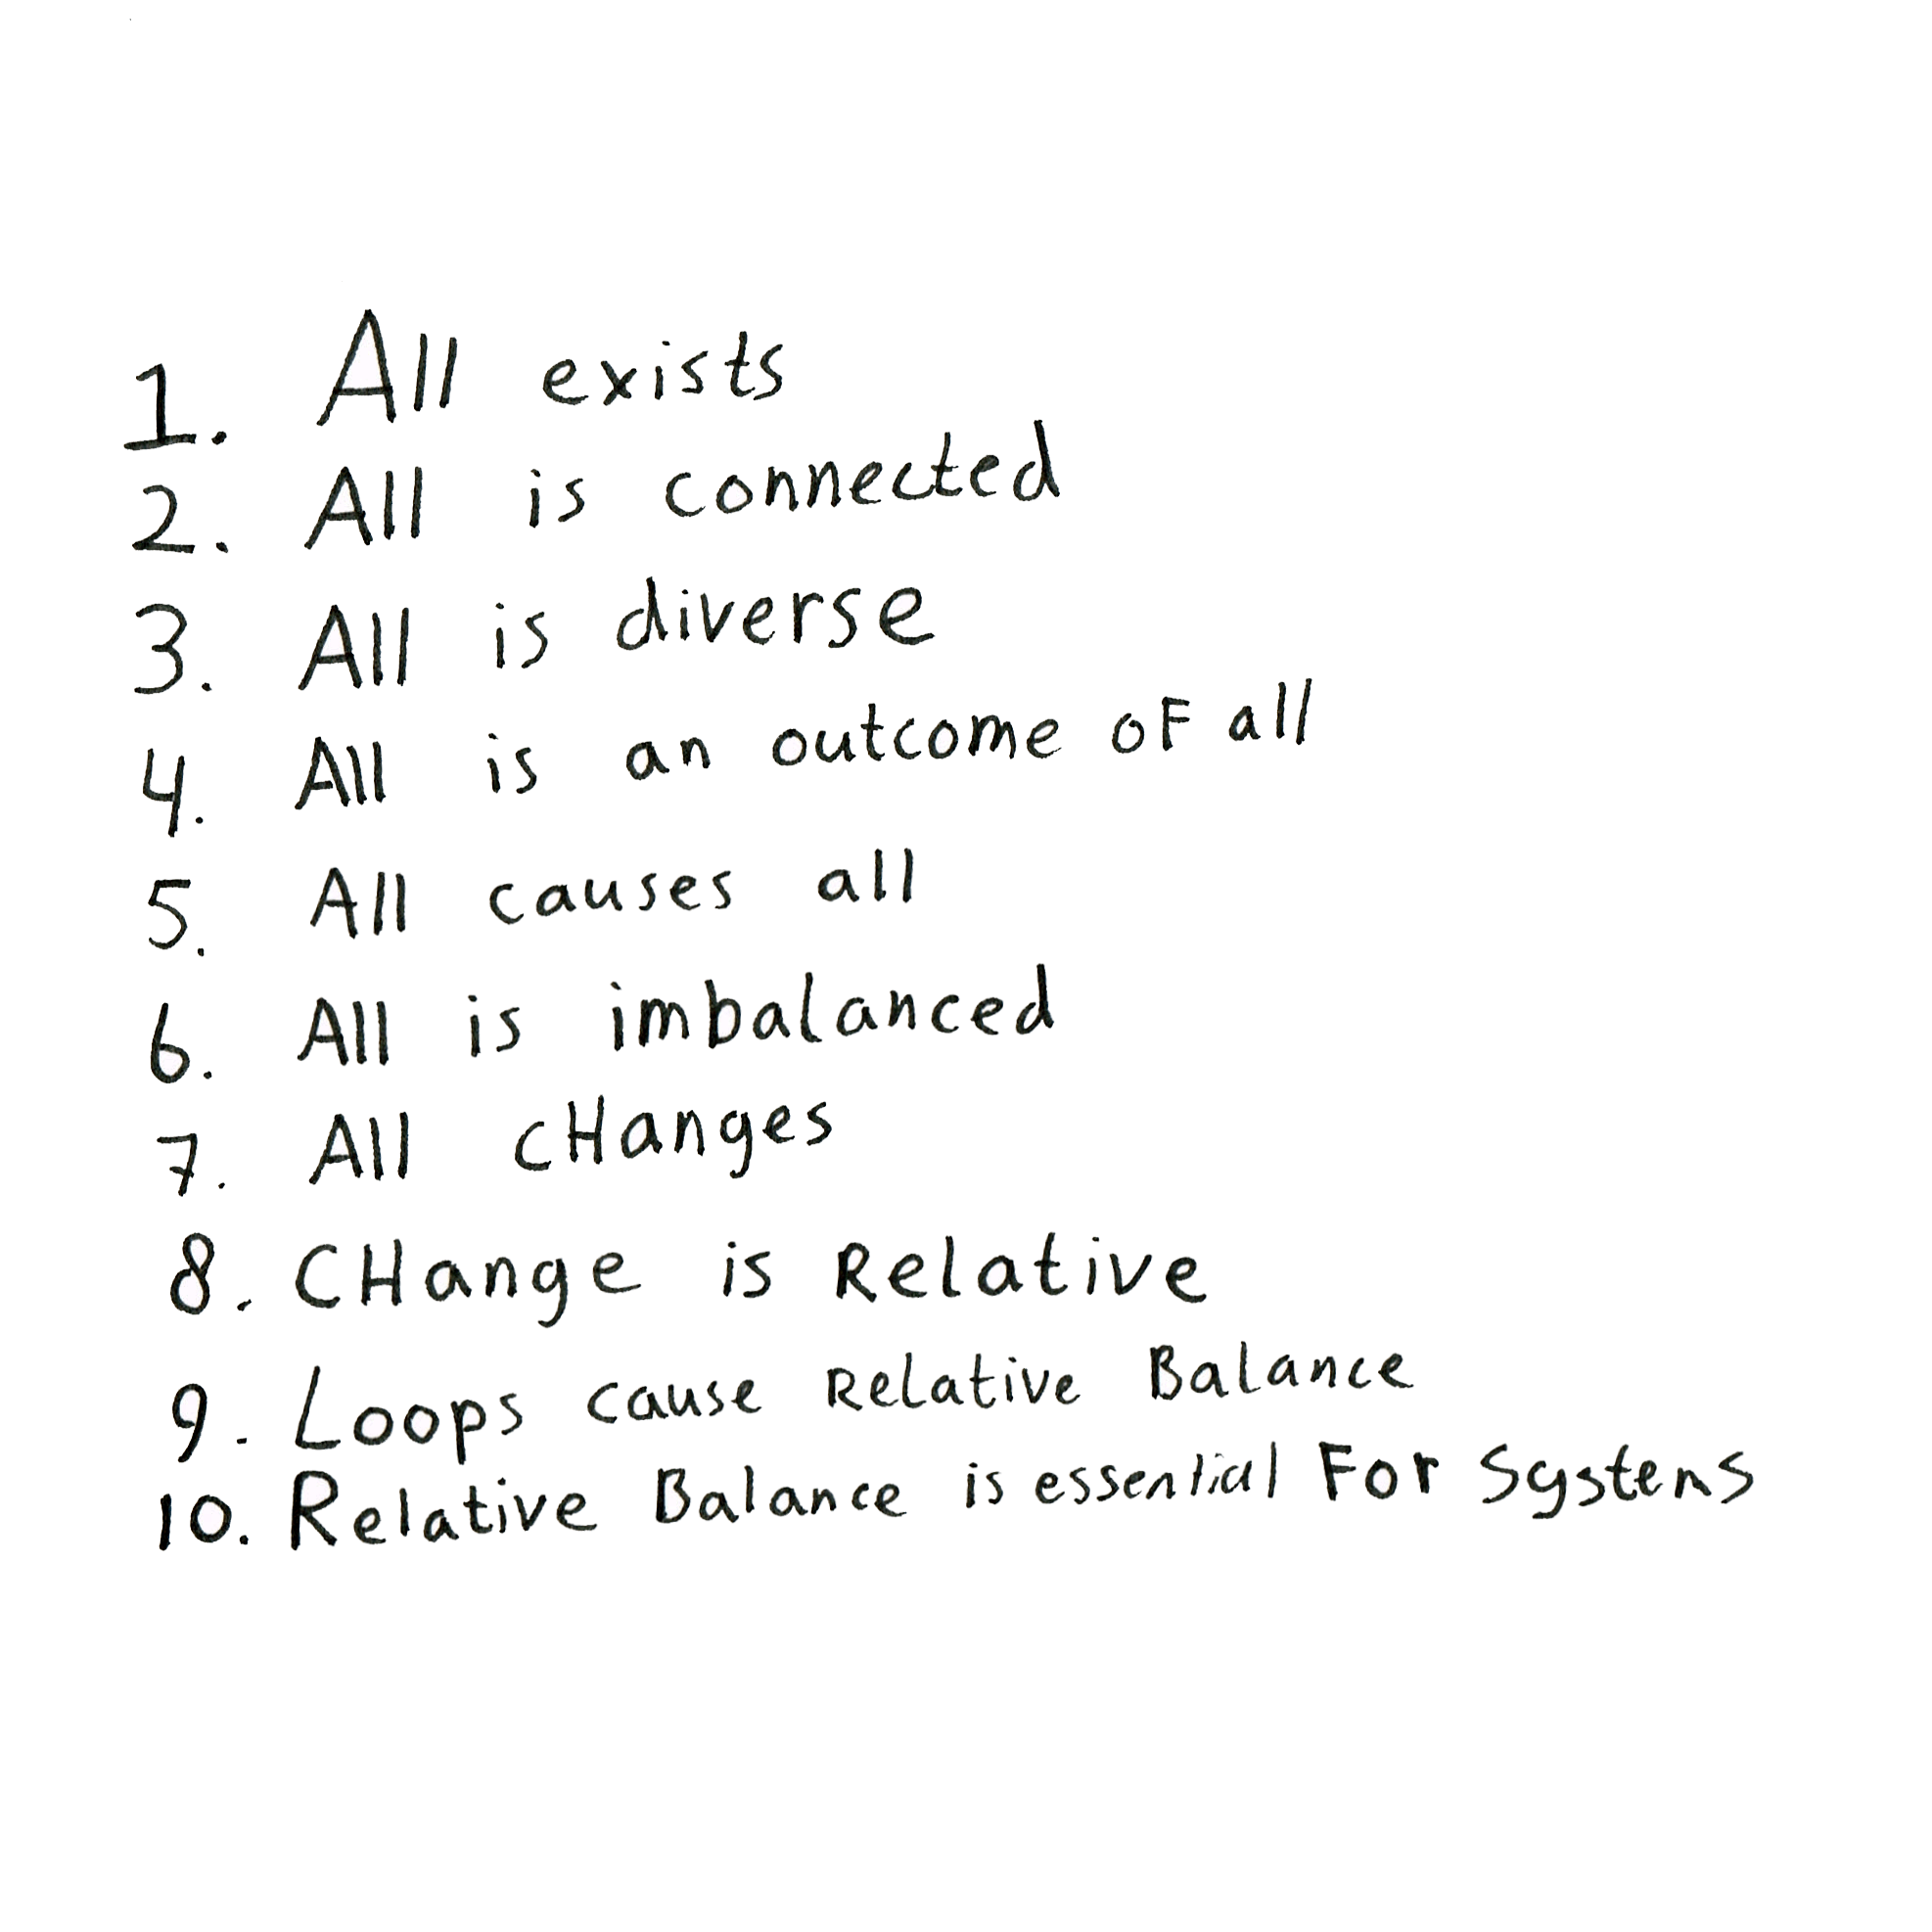 1. All exists
2. All is connected
3. All is diverse
4. All is an outcome oF all
5. All causes all
6. All is imbalanced
7. All cHanges
8. CHange is Relative
9. Loops cause Relative Balance
10. Relative Balance is essential For Systems